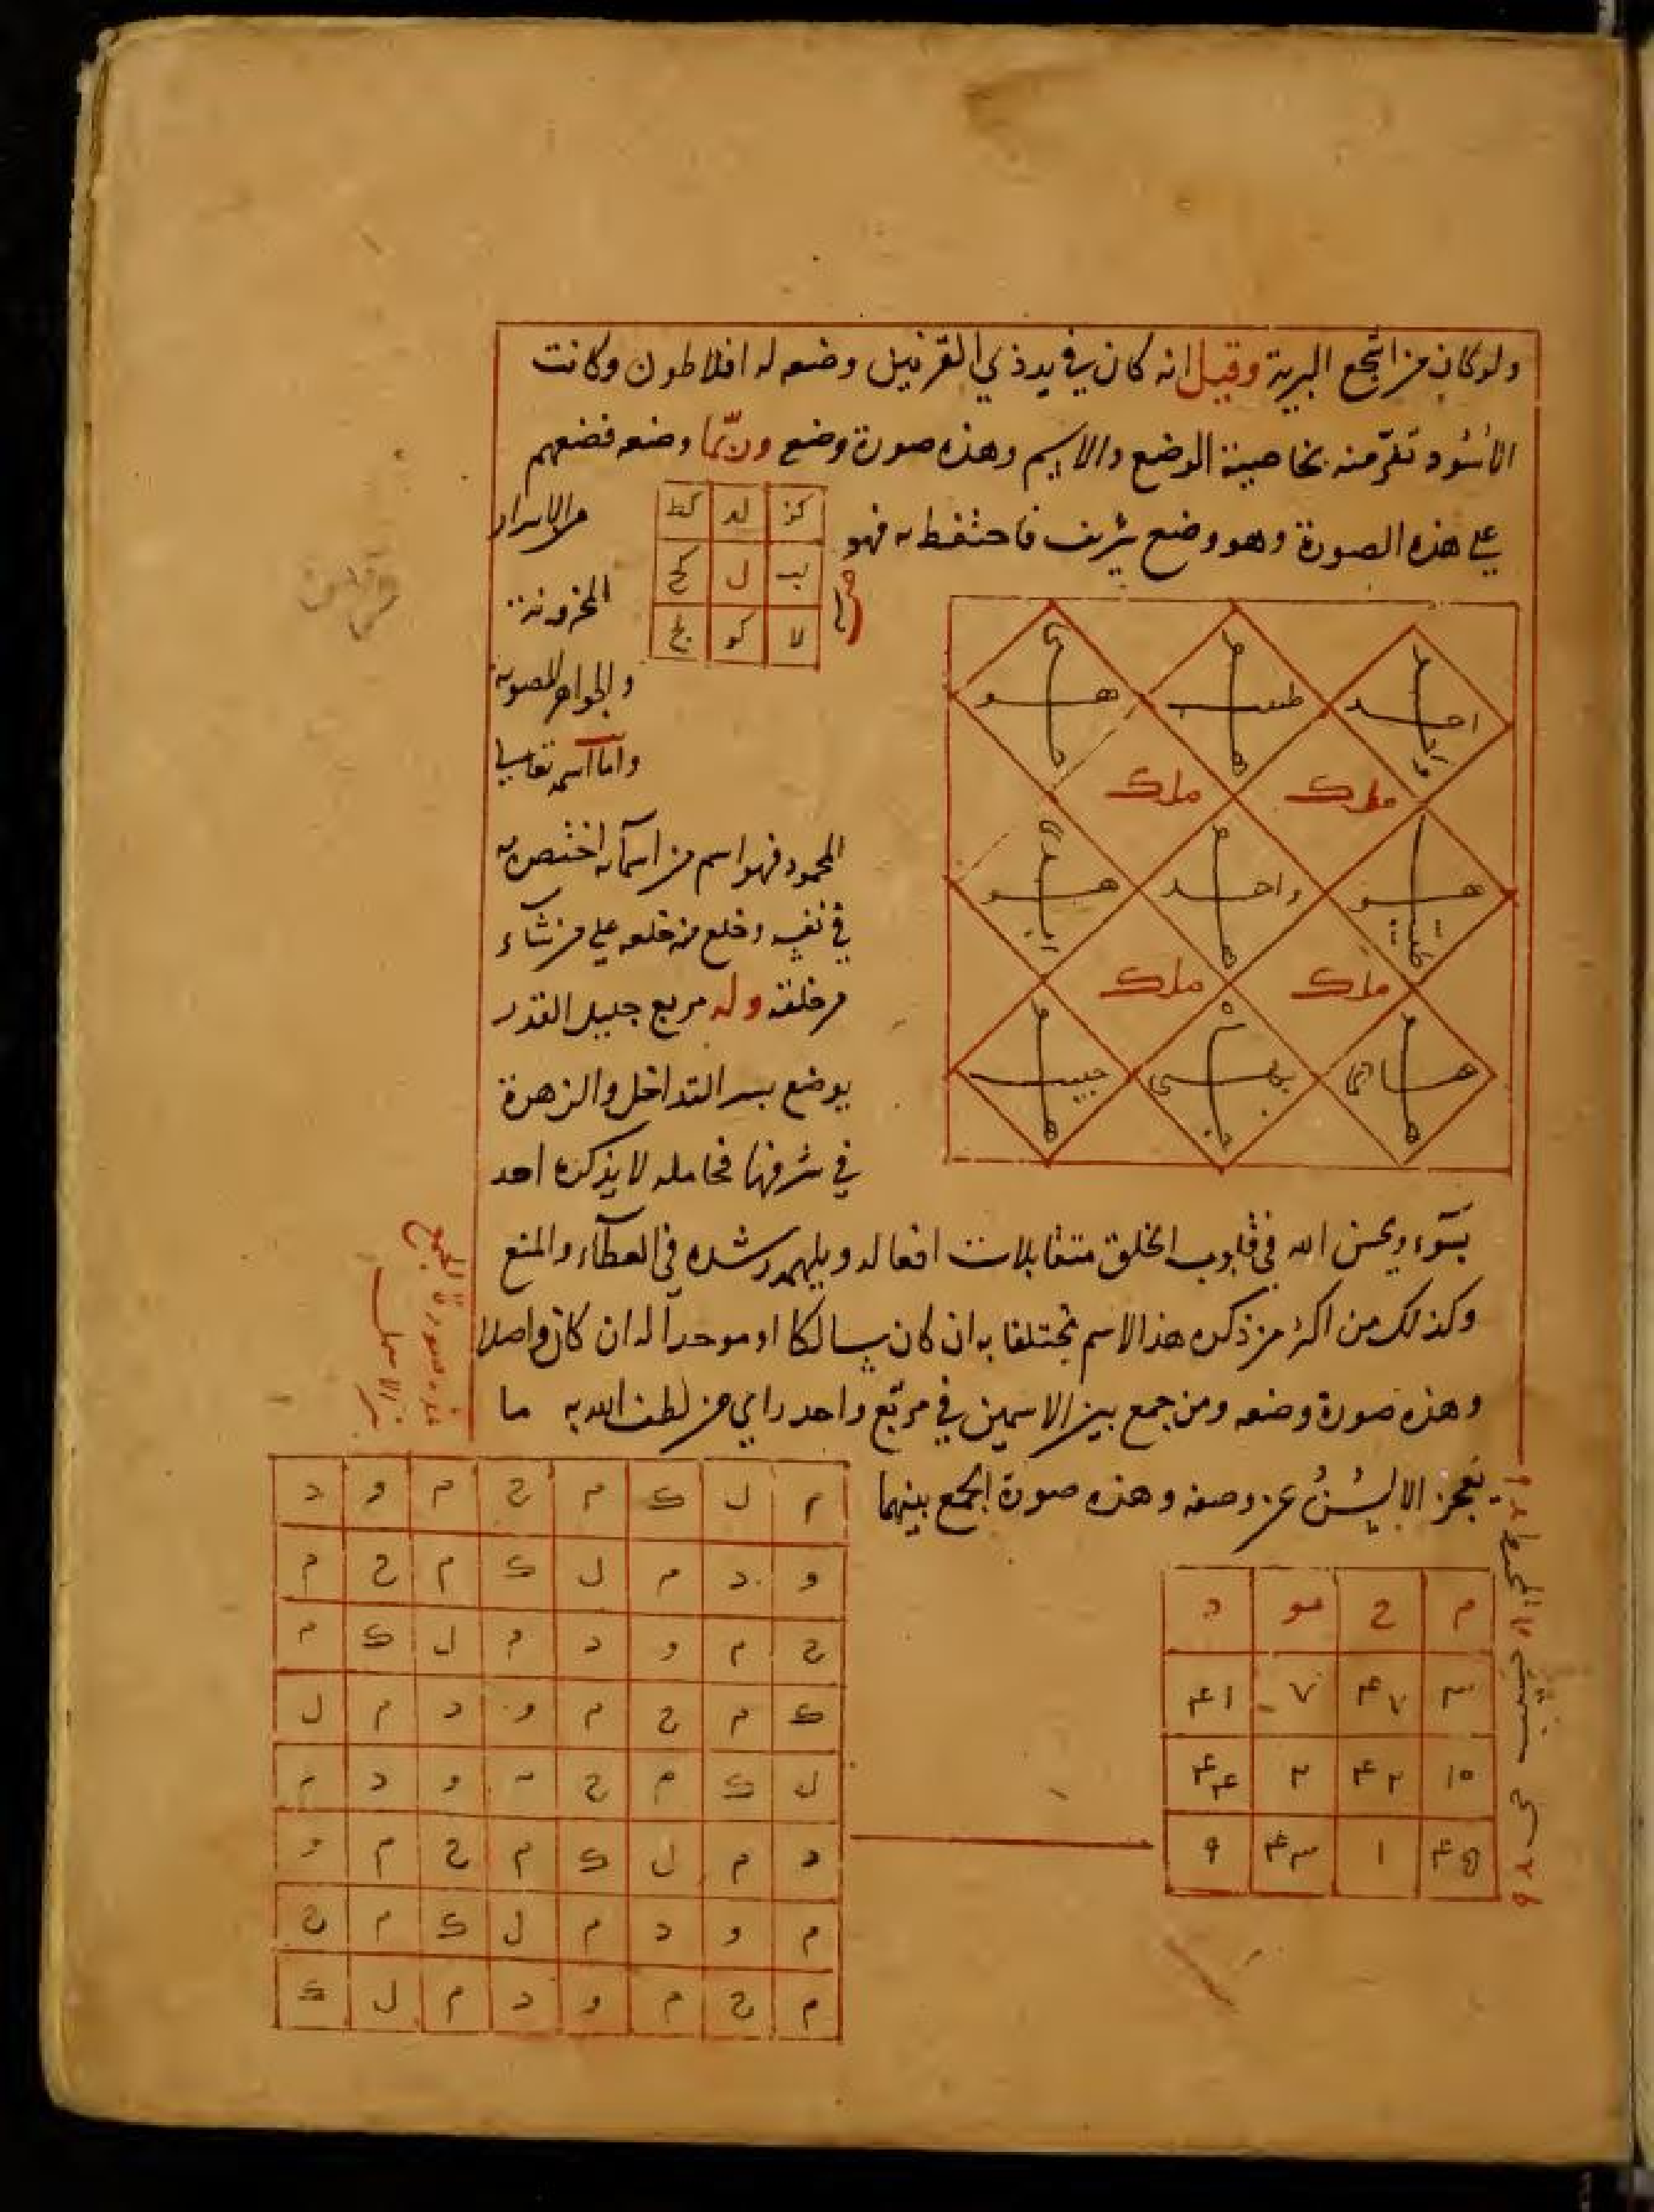 ولو كان من اشجع البرية وقيل انه كان في يد ذي القرنين وضعه له افلاطون وكانت
الاسود تفر منه بخاصية الوضع والاسم وهذه صورة وضع وربما وضعه فضعهم
على هذه الصورة وهو وضع شريف فاحتفظ به فهو
من الاسرار
المخزونة
والجواهر المصونة
كز لد كط
لب ل كح
لا كو لج
واما اسمه تعالى
المحمود فهو اسم من اسمآئه اختص به
في نفسه وخلع منه خلعه على من شاء
من خلقه وله مربع جليل القدر
يوضع بسر التداخل والزهرة
في شرفها فحامله لا يذكره احد
احد
واحد
هو
ملك ملك
هو
واحد
هو
ملك ملك
حبيب
بسوء ويحسن الله في قلوب الخلق متقابلات افعاله ويلهمه رشده في العطآء والمنع
وكذلك من اكثر من ذكره هذا الاسم متخلقا به ان كان سالكا او موحدا له ان كان واصلا
وهذه صورة وضعه ومن جمع بين الاسمين في مربع واحد راي من لطف الله به ما
تعجز الالسُنُ عن وصفه وهذه صورة الجمع بينهما
م ح مو د
٣ ۴٧ ٧ ۴١
١٥ ۴٢ ٢ ۴۴
۴۵ ١ ۴٣ ٩
م ل ك م ح م و د
و د م ل ك م ح م
ح م و د م ل ك م
ك م ح م و د م ل
ل ك م ح م و د م
د م ل ك م ح م و
م و د م ل ك م ح
م ح م و د م ل ك